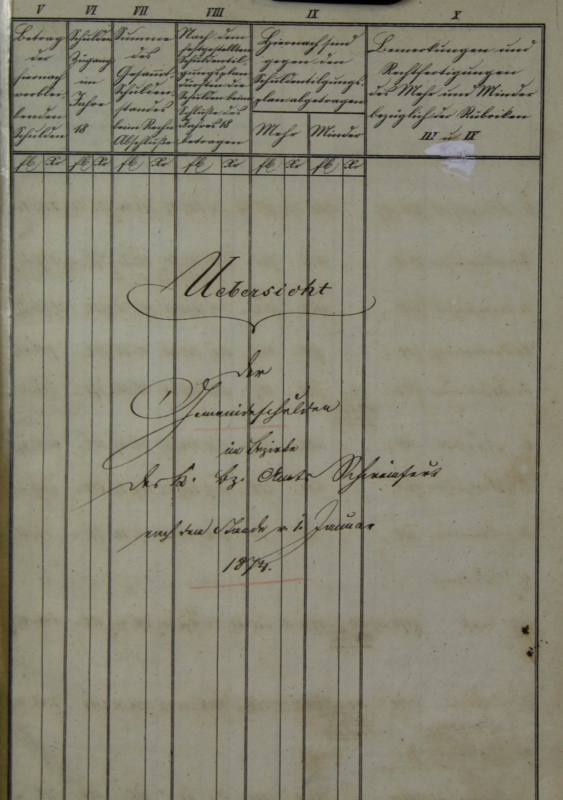 V VI VII VIII IX X
Betrag
der
hiernach
verblei-
benden
Schulden
Schulden
Zugang
im
Jahre
18
Summe
des
Gesammt-
Schulden
standes
beim Rechn.
Abschluße
Nach dem
festgestellten
Schuldentil-
gungsplan
durften die
Schulden beim
Schluße des
Jahres 18
betragen
Hiernach sind
gegen den
Schuldentilgungs-
plan abgetragen
Mehr Minder
Bemerkungen und
Rechtfertigungen
des Mehr und Minder
bezüglich der Rubriken
III u. IX
fl. Xr fl. Xr fl. Xr fl. Xr fl. Xr fl. Xr
Uebersicht
der
Gemeindeschulden
im Bezirke
des k. Bz. Amts Schweinfurt
nach dem Stande v. 1. Januar
1874.